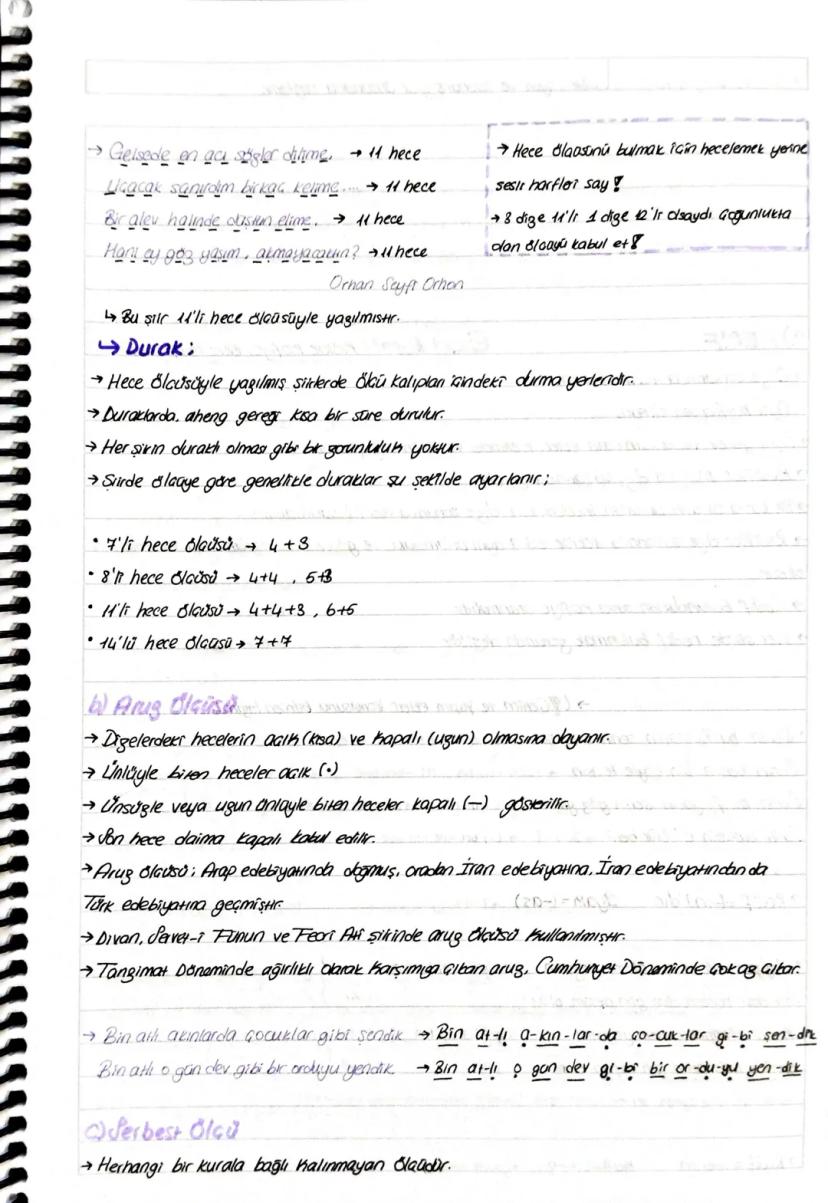 → Gelsede en acı sözler dilime, → 11 hece
Uçacak sanırdım birkaç kelime... → 11 hece
Bir alev halinde düştün elime, → 11 hece
Hani ey göz yaşım, akmayacaktın? → 11 hece
Orhan Seyfi Orhon
→ Hece ölçüsünü bulmak için hecelemek yerine
sesli harfleri say!
→ 3 dize 11'li 1 dize 12'li olsaydı çoğunlukta
olan ölçüyü kabul et!
↳ Bu şiir 11'li hece ölçüsüyle yazılmıştır.
↳ Durak:
→ Hece ölçüsüyle yazılmış şiirlerde ölçü kalıpları içindeki durma yerleridir.
→ Duraklarda, aheng gereği kısa bir süre durulur.
→ Her şiirin duraklı olması gibi bir zorunluluk yoktur.
→ Şiirde ölçüye göre genellikle duraklar şu şekilde ayarlanır;
• 7'li hece ölçüsü → 4+3
• 8'li hece ölçüsü → 4+4, 5+3
• 11'li hece ölçüsü → 4+4+3, 6+5
• 14'lü hece ölçüsü → 7+7
b) Aruz Ölçüsü
→ Dizelerdeki hecelerin açık (kısa) ve kapalı (uzun) olmasına dayanır.
→ Ünlüyle biten heceler açık (•)
→ Ünsüzle veya uzun ünlüyle biten heceler kapalı (—) gösterilir.
→ Son hece daima kapalı kabul edilir.
→ Aruz ölçüsü; Arap edebiyatında doğmuş, oradan İran edebiyatına, İran edebiyatından da
Türk edebiyatına geçmiştir.
→ Divan, Servet-i Fünun ve Fecri Ati şiirinde aruz ölçüsü kullanılmıştır.
→ Tanzimat Döneminde ağırlıklı olarak karşımıza çıkan aruz, Cumhuriyet Döneminde çok az çıkar.
→ Bin atlı akınlarda çocuklar gibi şendik → Bin at-lı a-kın-lar-da ço-cuk-lar gi-bi şen-dik
Bin atlı o gün dev gibi bir orduyu yendik → Bin at-lı o gün dev gi-bi bir or-du-yu yen-dik
c) Serbest Ölçü
→ Herhangi bir kurala bağlı kalınmayan ölçüdür.